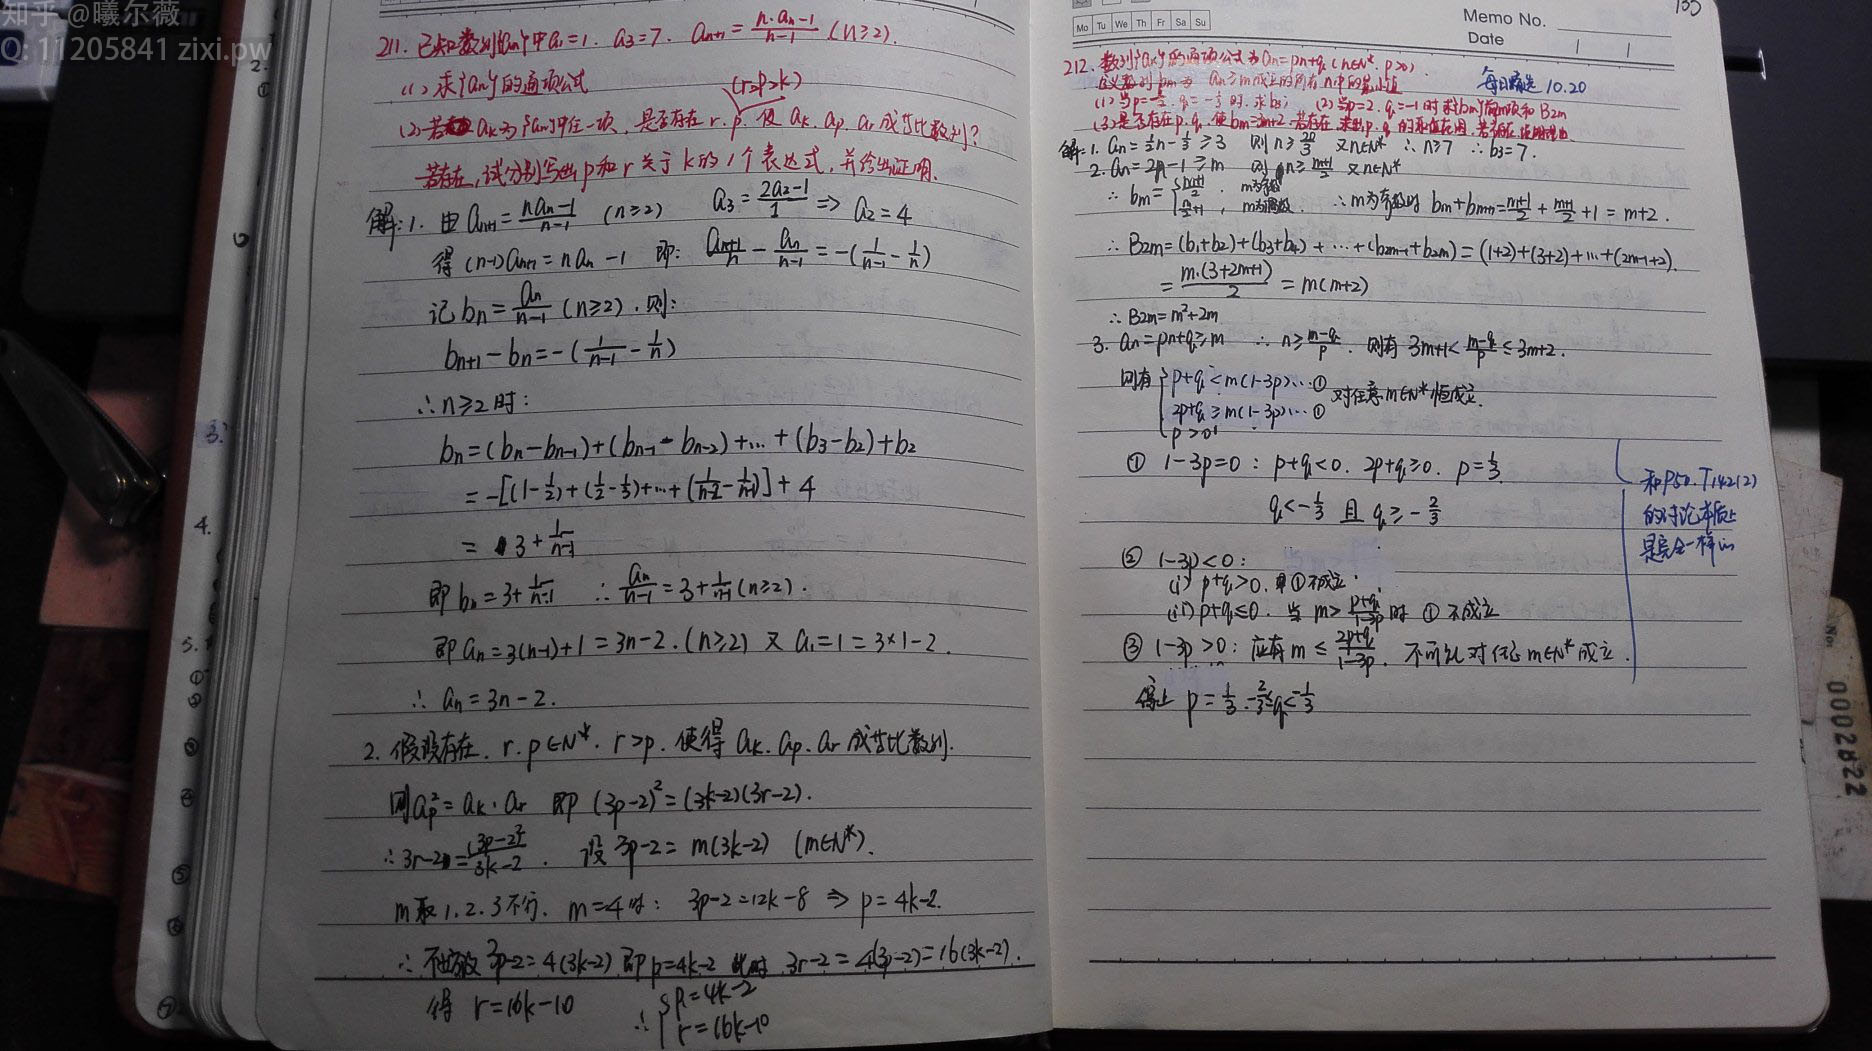 知乎 @曦尔薇
Q: 11205841 zixi.pw
211. 已知数列{an}中a1=1. a3=7. an+1=(n·an-1)/(n-1) (n≥2).
(1) 求{an}的通项公式 (r>p>k)
(2) 若ak为{an}中任一项, 是否存在r.p. 使ak.ap.ar成等比数列?
若存在, 试分别写出p和r关于k的1个表达式, 并给出证明.
解:1. 由an+1=(nan-1)/(n-1) (n≥2) a3=(2a2-1)/1 ⇒ a2=4
得(n-1)an+1=nan-1 即: an+1/n - an/(n-1) = -(1/(n-1) - 1/n)
记bn=an/(n-1) (n≥2). 则:
bn+1-bn=-(1/(n-1) - 1/n)
∴n≥2时:
bn=(bn-bn-1)+(bn-1-bn-2)+…+(b3-b2)+b2
=-[(1-1/2)+(1/2-1/3)+…+(1/(n-2)-1/(n-1))]+4
= 3+1/(n-1)
即bn=3+1/(n-1) ∴ an/(n-1)=3+1/(n-1) (n≥2).
即an=3(n-1)+1=3n-2. (n≥2) 又a1=1=3×1-2.
∴ an=3n-2.
2. 假设存在. r.p∈N*. r>p. 使得ak.ap.ar成等比数列.
则ap²=ak·ar 即 (3p-2)²=(3k-2)(3r-2).
∴3r-2=(3p-2)²/(3k-2). 设3p-2=m(3k-2) (m∈N*).
m取1.2.3不行. m=4时: 3p-2=12k-8 ⇒ p=4k-2.
∴不妨设3p-2=4(3k-2) 即p=4k-2 此时 3r-2=4(3p-2)=16(3k-2).
得 r=16k-10 ∴{p=4k-2
r=16k-10
Mo Tu We Th Fr Sa Su
Memo No.
Date
212. 数列{an}的通项公式为an=pn+q (n∈N*, p>0).
定义数列{bm}为 an≥m成立的所有n中的最小值 每日精选 10.20
(1) 当p=1/2. q=-1/3时. 求b3; (2) 当p=2. q=-1时 求{bm}前2m项和 B2m
(3) 是否存在p.q. 使bm=3m+2. 若存在. 求出p.q的取值范围. 若不存在. 说明理由.
解:1. an=1/2n-1/3≥3 则n≥20/3 又n∈N* ∴n≥7 ∴b3=7.
2. an=2n-1≥m 则 n≥(m+1)/2 又n∈N*
∴ bm={(m+1)/2, m为奇数
m/2+1, m为偶数. ∴m为奇数时 bm+bm+1=(m+1)/2+(m+1)/2+1=m+2.
∴ B2m=(b1+b2)+(b3+b4)+…+(b2m-1+b2m)=(1+2)+(3+2)+…+(2m-1+2).
=m·(3+2m+1)/2 = m(m+2)
∴ B2m=m²+2m
3. an=pn+q≥m ∴ n≥(m-q)/p. 则有 3m+1<(m-q)/p≤3m+2.
则有{p+q<m(1-3p)…①
2p+q≥m(1-3p)…① 对任意m∈N*恒成立.
p>0
① 1-3p=0: p+q<0. 2p+q≥0. p=1/3.
q<-1/3 且 q≥-2/3
和P50. T142(2)
的讨论本质上
是完全一样的
② 1-3p<0:
(i) p+q>0. ①不成立.
(ii) p+q≤0. 当 m>(p+q)/(1-3p)时 ①不成立
③ 1-3p>0: 应有m≤(2p+q)/(1-3p). 不可能对任意m∈N*成立.
综上 p=1/3. -2/3≤q<-1/3
0002822